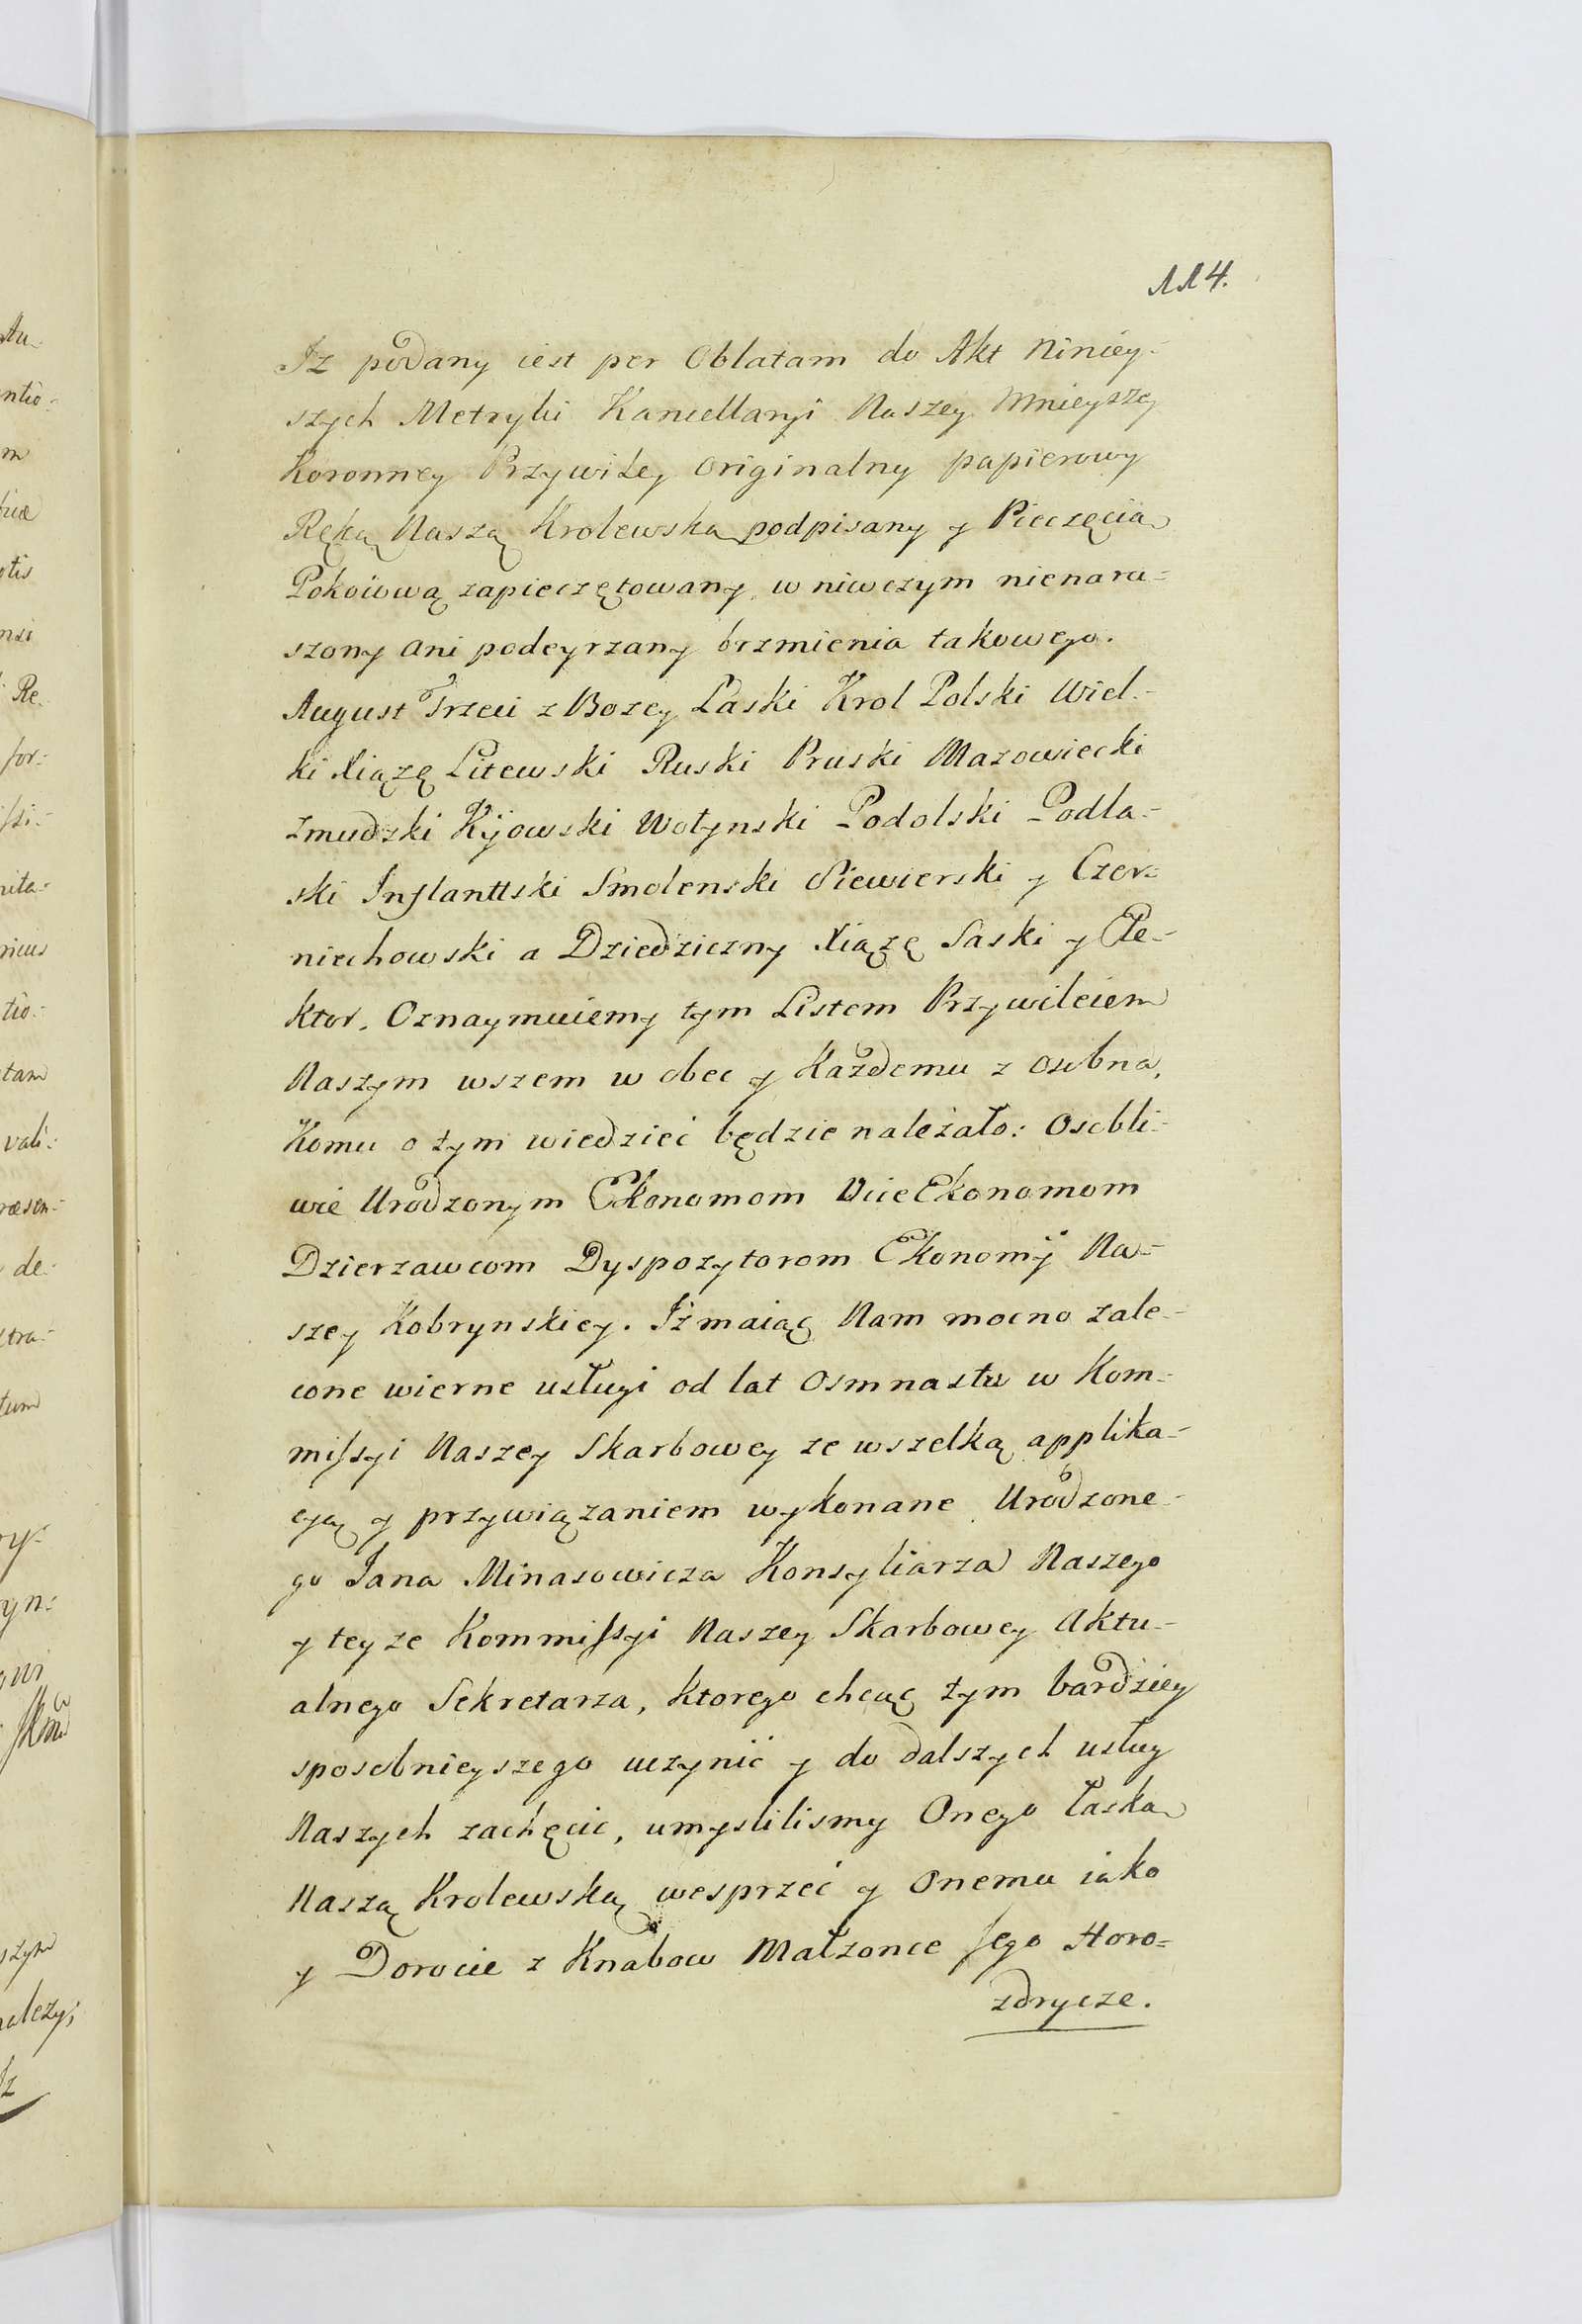 114.
Iz podany iest per Oblatam do Akt Niniey-
szych Metryki Kancellaryi Naszey Mnieyszey
Koronney Przywiley originalny papierowy
Ręką Naszą Krolewską podpisany y Pieczęcią
Pokoiową zapieczętowany, w niwczym nienaru-
szony ani podeyrzany brzmienia takowego.
August Trzeci z Bozey Łaski Krol Polski Wiel-
ki Xiązę Litewski Ruski Pruski Mazowiecki
Zmudzki Kijowski Wołynski Podolski Podla-
ski Inflanttski Smolenski Siewierski y Czer-
niechowski a Dziedziczny Xiązę Saski y Ele-
ktor. Oznaymuiemy tym Listem Przywileiem
Naszym wszem w obec y Każdemu z osobna,
Komu o tym wiedzieć będzie należało: Osobli-
wie Urodzonym Ekonomom ViceEkonomom
Dzierzawcom Dyspozytorom Ekonomij Na-
szey Kobrynskiey. Iż maiąc Nam mocno zale-
cone wierne usługi od lat Osmnastu w Kom-
missyi Naszey Skarbowey ze wszelką applika-
cyą y przywiązaniem wykonane Urodzone-
go Jana Minasowicza Konsyliarza Naszego
y teyze Kommissyi Naszey Skarbowey Aktu-
alnego Sekretarza, ktorego chcąc tym bardziey
sposobnieyszego uczynić y do dalszych usług
Naszych zachęcic, umyslilismy Onego łaską
Naszą Krolewską wesprzeć y Onemu iako
y Dorocie z Knabow Małzonce Jego Horo-
zdrycze.